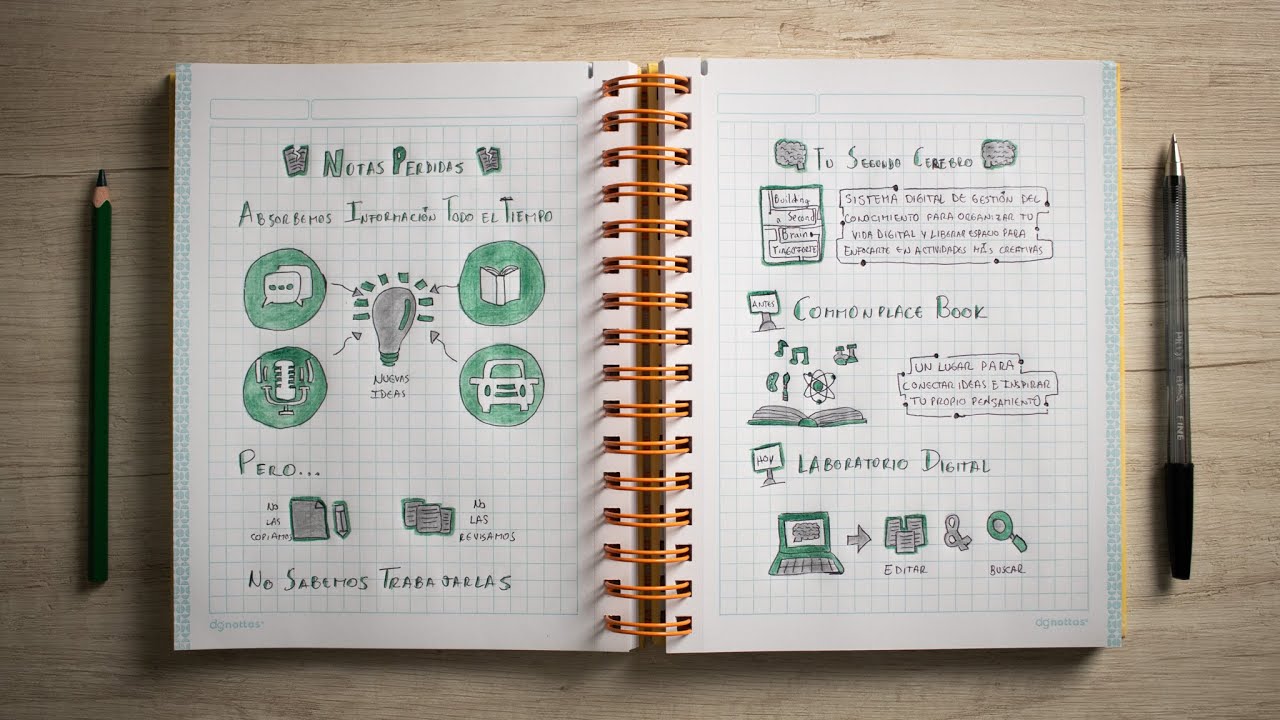 NOTAS PERDIDAS
ABSORBEMOS INFORMACIÓN TODO EL TIEMPO
NUEVAS
IDEAS
PERO...
NO
LAS
COPIAMOS
NO
LAS
REVISAMOS
NO SABEMOS TRABAJARLAS
dgnottas
TU SEGUNDO CEREBRO
Building
a Second
Brain
TIAGO FORTE
SISTEMA DIGITAL DE GESTIÓN DEL
CONOCIMIENTO PARA ORGANIZAR TU
VIDA DIGITAL Y LIBERAR ESPACIO PARA
ENFOCARTE EN ACTIVIDADES MÁS CREATIVAS
ANTES
COMMONPLACE BOOK
UN LUGAR PARA
CONECTAR IDEAS E INSPIRAR
TU PROPIO PENSAMIENTO
HOY
LABORATORIO DIGITAL
&
EDITAR
BUSCAR
dgnottas
FINE